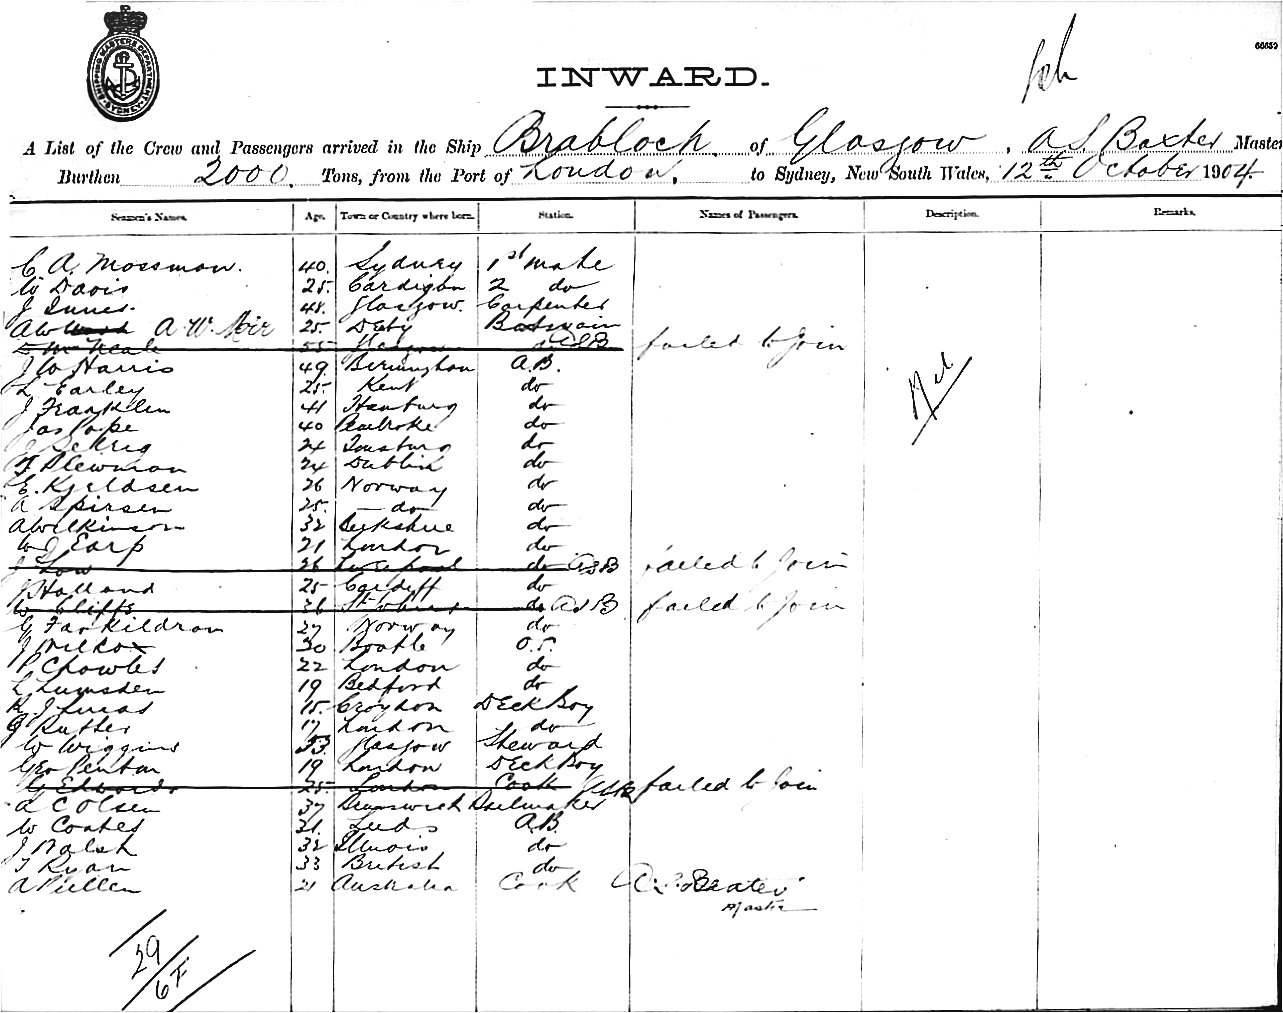 SHIPPING MASTERS DEPARTMENT SYDNEY
66659
INWARD.
A List of the Crew and Passengers arrived in the Ship Brabloch of Glasgow, A S Baxter Master
Burthen 2000 Tons, from the Port of London, to Sydney, New South Wales, 12th October 1904
Seamen's Names. Age. Town or Country where born. Station. Names of Passengers. Description. Remarks.
C A. Mossman. 40. Sydney 1st mate
W Davis 25. Cardigan 2 do
J Innes. 48. Glasgow. Carpenter
A W A. W. Moir 25. Boatswain
McNeale 55 ASB failed to join
J W Harris 49 Birmingham A.B.
L Earley 25. Kent do
J Franklin 41 Hamburg do
Jas Pope 40 Pembroke do
24 do
Plewman 24 Dublin do
E. Kjeldsen 26 Norway do
A 25. - do - do
A Wilkinson 32 Berkshire do
W J Earp 21 London do
J Low 26 Liverpool do ASB failed to join
J Holland 25 Cardiff do
W Cliffs 26 do ASB failed to join
27 Norway do
J Wilcox 30 Bootle O.S.
P Chowles 22 London do
L Lumsden 19 Bedford do
R. J Lucas 15. Croydon Deck Boy
G Rutter 17 London do
W Wiggins 53 Glasgow Steward
Geo Penton 19 London Deck Boy
G Edwards 25 London Cook ASB failed to join
C Olsen 37 Brunswick Sailmaker
W Coates 31. Leeds A.B.
J Walsh 32 Illinois do
T Ryan 33 British do
A Pullen 21 Australia Cook A. S. Baxter
Master
Nil
29
6F